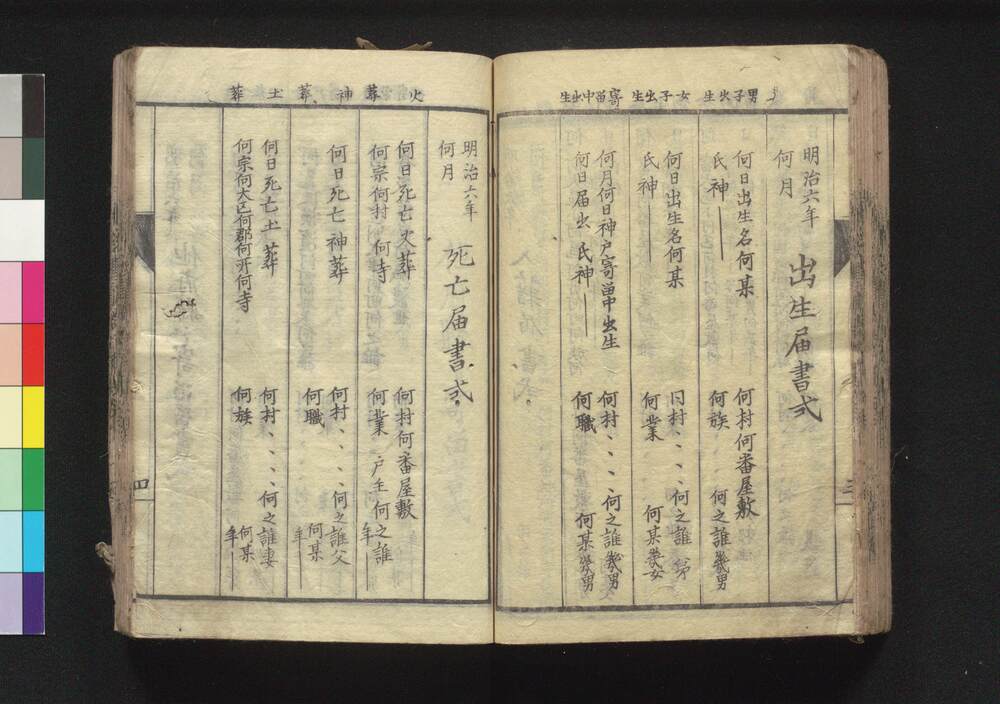 男子出生
女子出生
寄留中出生
明治六年
何月
出生届書式
何日出生名何某
氏神
何村何番屋敷
何族 何之誰幾男
何日出生名何某
氏神
旧村、、、何之誰第
何業 何某幾女
何月何日神戸寄留中出生
何日届出 氏神
何村、、、何之誰幾男
何職 何某幾男
三
火葬
神葬
土葬
明治六年
何月
死亡届書式
何日死亡火葬
何宗何村 何寺
何村何番屋敷
何業 戸主何之誰
年
何日死亡神葬
何村、、、何之誰父
何職 何某
年
何日死亡土葬
何宗何大区何郡何村何寺
何村、、、何之誰妻
何族 何某
年
四